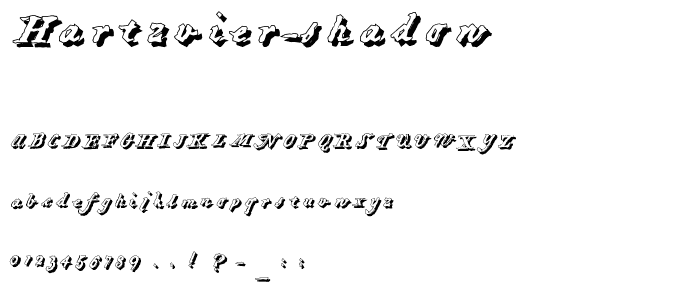 Hartzvier-shadow
ABCDEFGHIJKLMNOPQRSTUVWXYZ
abcdefghijklmnopqrstuvwxyz
0123456789 . , ! ? - _ : ;